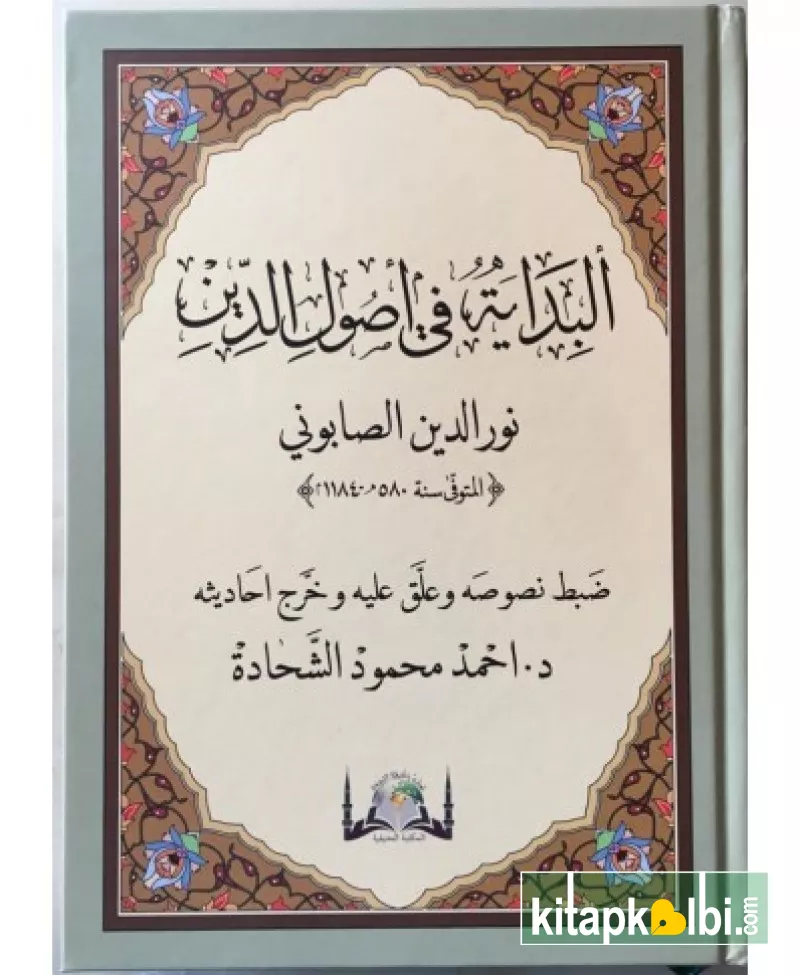 ألبِدَايَةُ في أصُولِ الدِّينِ
نور الدين الصابوني
﴿المتوفّى سنة ٥٨٠هـ-١١٨٤م﴾
ضَبط نصوصه وعلَّق عليه وخرَّج احاديثه
د. احمدْ محمودْ الشَّحادة
المكتبة الحنيفية
kitapkalbi.com